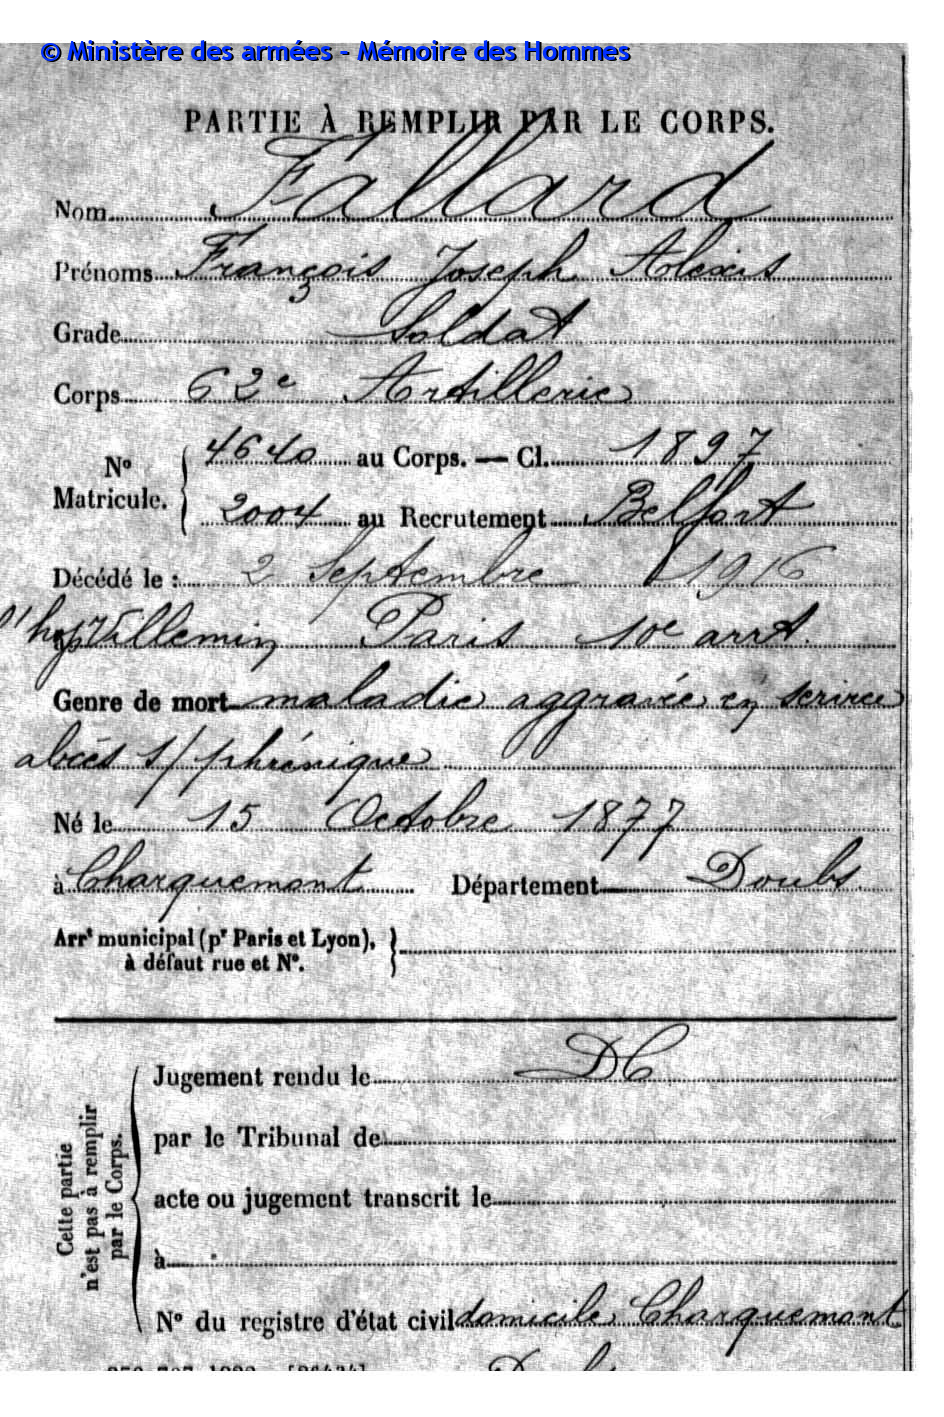 © Ministère des armées - Mémoire des Hommes
PARTIE À REMPLIR PAR LE CORPS.
Nom Fallard
Prénoms François Joseph Alexis
Grade Soldat
Corps 62e Artillerie
N° Matricule. 4640 au Corps. — Cl. 1897
2004 au Recrutement Belfort
Décédé le : 2 Septembre 1916
l'hop Villemin Paris 10e arrt.
Genre de mort maladie aggravée en service
abcès s/phrénique
Né le 15 Octobre 1877
à Charquemont Département Doubs
Arrt municipal (pr Paris et Lyon),
à défaut rue et N°.
Cette partie
n'est pas à remplir
par le Corps.
Jugement rendu le DC
par le Tribunal de
acte ou jugement transcrit le
à
N° du registre d'état civil domicile Charquemont
Doubs